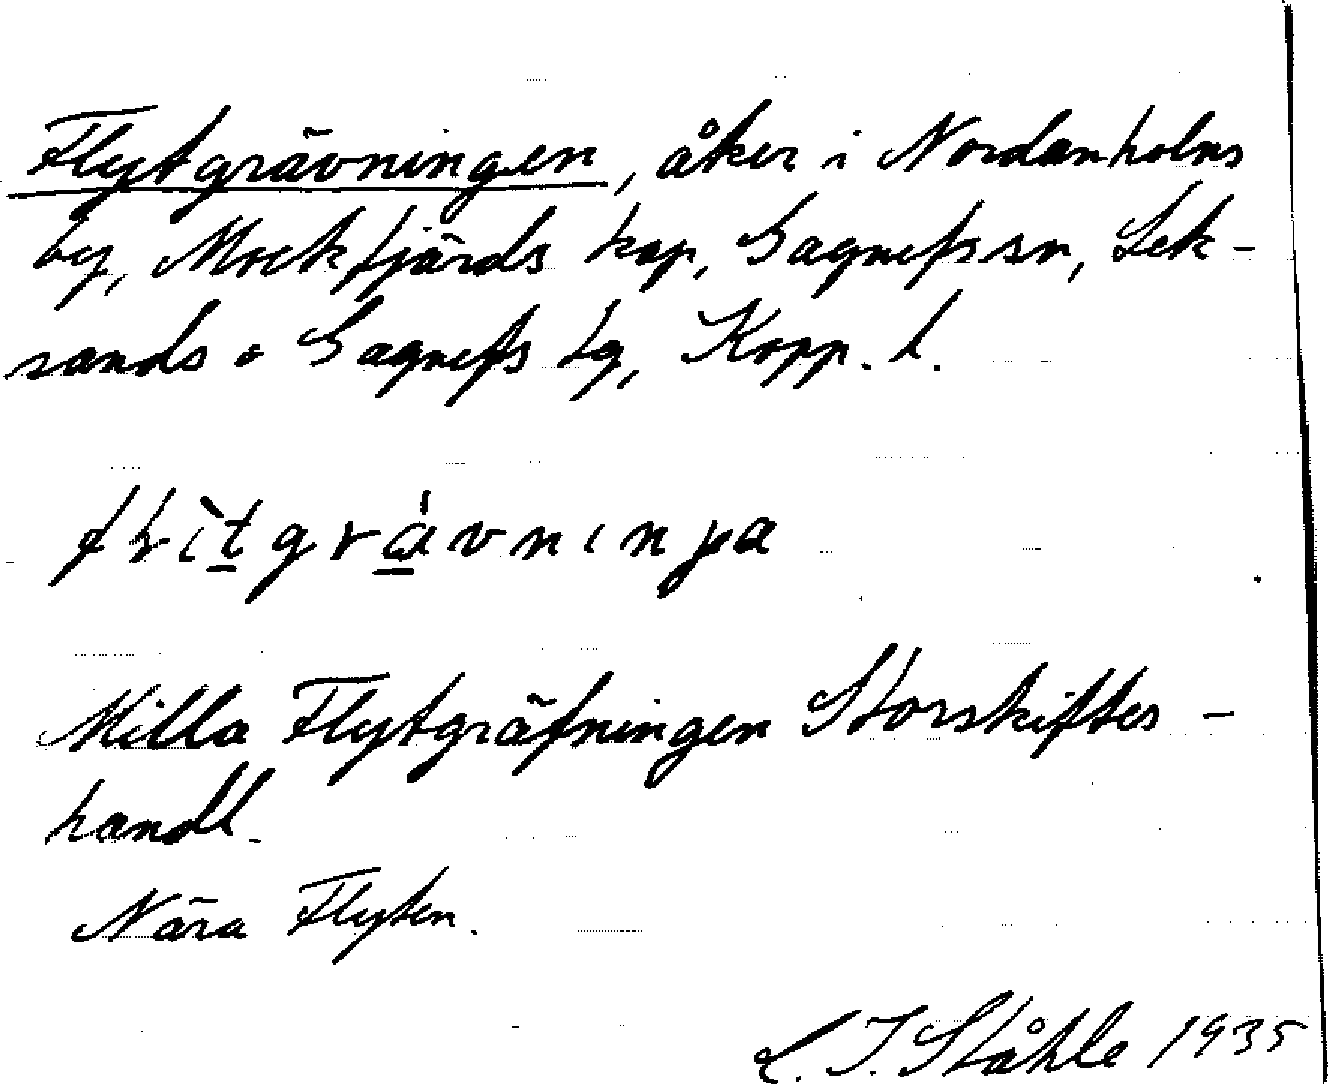 Flytgrävningen, åker i Nordanholns
by, Mockfjärds kap, Gagnefs sn, Lek-
sands o Gagnefs tg, Kopp. l.
Milla Flytgräfningen Storskiftes-
handl.
Nära Flyten.
C. I. Ståhle 1935